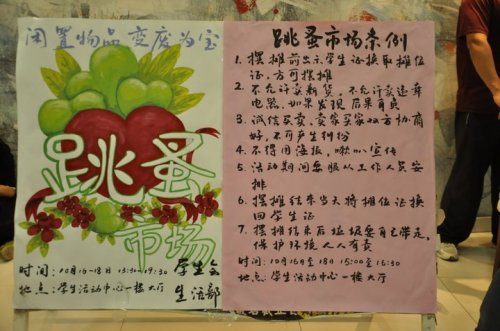 闲置物品 变废为宝
跳蚤
市场
时间：10月16-18日 13:30-19:30
地点：学生活动中心一楼大厅
学生会
生活部
跳蚤市场条例
1. 摆摊前出示学生证换取摊位
证，方可摆摊
2. 不允许卖新货，不允许卖违章
电器，如果发现 后果自负
3. 诚信买卖，卖家买家双方协商
好，不可产生纠纷
4. 不得用海报，喇叭宣传
5. 活动期间要服从工作人员安
排
6. 摆摊结束当天将摊位证换
回学生证
7. 摆摊结束后垃圾要自己带走，
保护环境人人有责
时间：10月16日至18日 15:00至16:30
地点：学生活动中心一楼大厅